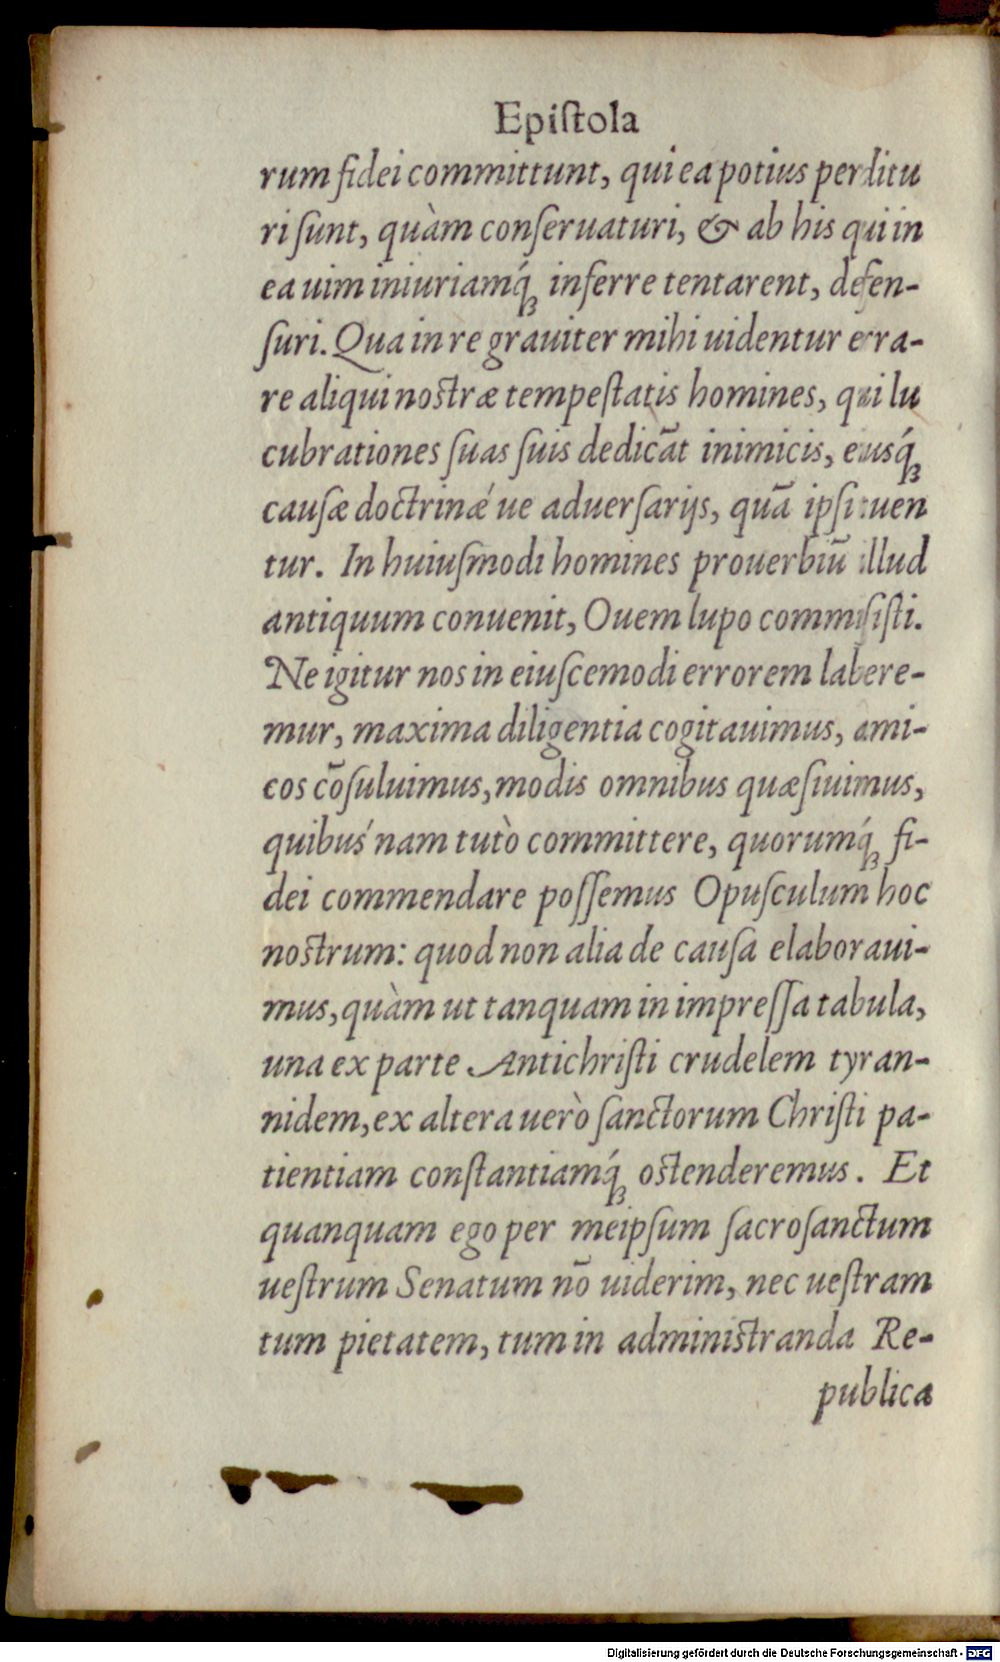 Epiſtola
rum fidei committunt, qui ea potius perditu
ri ſunt, quàm conſeruaturi, & ab his qui in
ea uim iniuriamq́ꝫ inferre tentarent, defen-
ſuri. Qua in re grauiter mihi uidentur erra-
re aliqui noſtræ tempeſtatis homines, qui lu
cubrationes ſuas ſuis dedicāt inimicis, eiusq́ꝫ
cauſæ doctrinǽ ue aduerſarijs, quā ipſi tuen
tur. In huiuſmodi homines prouerbiū illud
antiquum conuenit, Ouem lupo commiſiſti.
Ne igitur nos in eiuſcemodi errorem labere-
mur, maxima diligentia cogitauimus, ami-
cos cōſuluimus, modis omnibus quæſiuimus,
quibuś nam tutò committere, quorumq́ꝫ fi-
dei commendare poſſemus Opuſculum hoc
noſtrum: quod non alia de cauſa elaboraui-
mus, quàm ut tanquam in impreſſa tabula,
una ex parte Antichriſti crudelem tyran-
nidem, ex altera uerò ſanctorum Chriſti pa-
tientiam conſtantiamq́ꝫ oſtenderemus. Et
quanquam ego per meipſum ſacroſanctum
ueſtrum Senatum nō uiderim, nec ueſtram
tum pietatem, tum in adminiſtranda Re-
publica
Digitalisierung gefördert durch die Deutsche Forschungsgemeinschaft - DFG